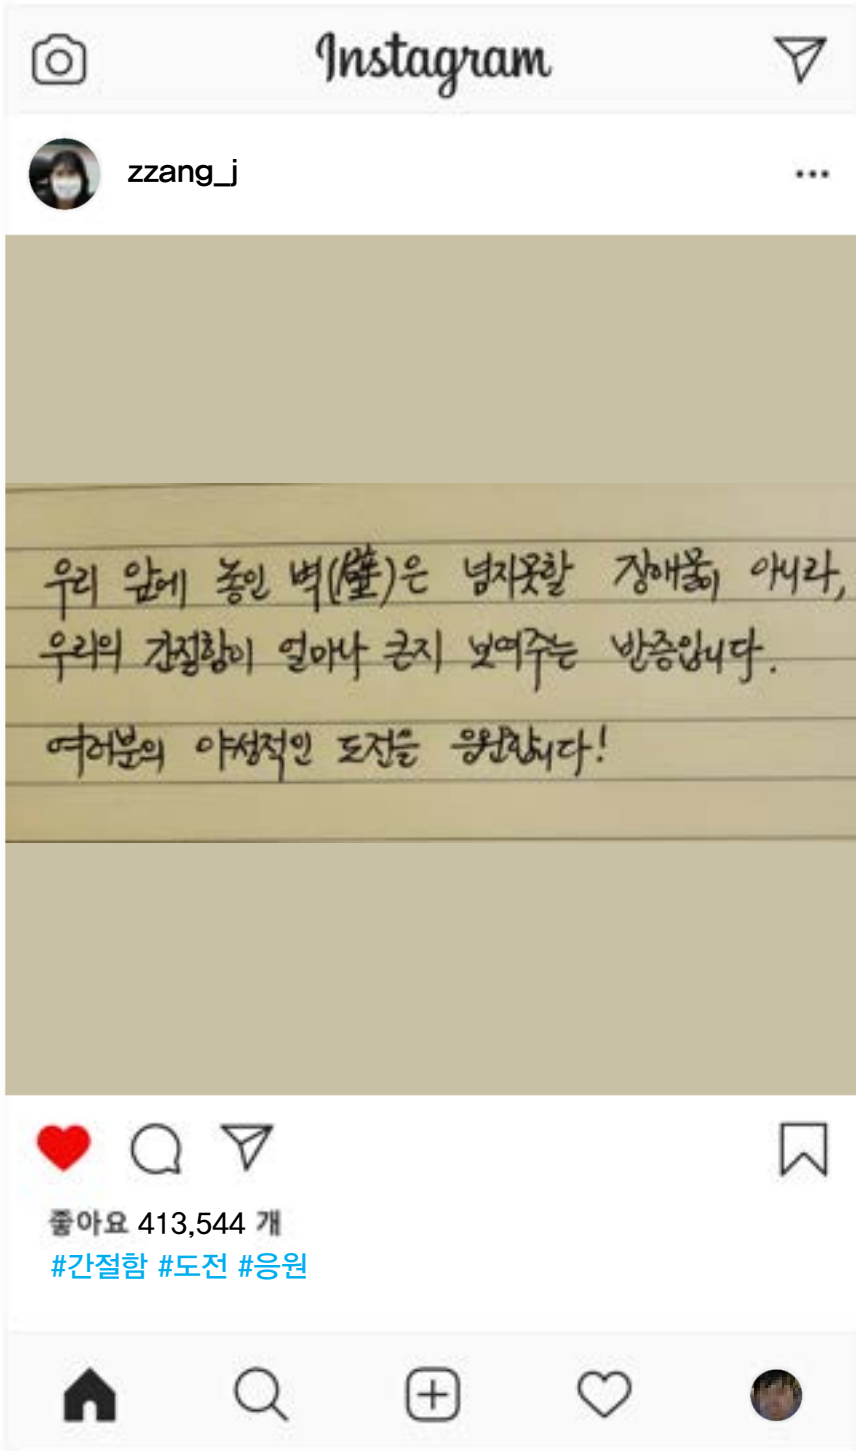 Instagram
zzang_j
우리 앞에 놓인 벽(壁)은 넘지못할 장애물이 아니라,
우리의 간절함이 얼마나 큰지 보여주는 반증입니다.
여러분의 야성적인 도전을 응원합니다!
좋아요 413,544 개
#간절함 #도전 #응원